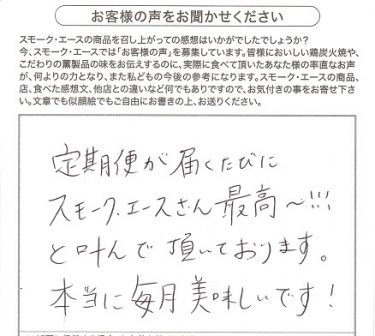 お客様の声をお聞かせください
スモーク・エースの商品を召し上がっての感想はいかがでしたでしょうか？
今、スモーク・エースでは「お客様の声」を募集しています。皆様においしい鶏炭火焼や、
こだわりの薫製品の味をお伝えするのに、実際に食べて頂いたあなた様の率直なお声
が、何よりの力となり、また私どもの今後の参考になります。スモーク・エースの商品、
店、食べた感想文、他店との違いなど何でもありですので、お気付きの事をお寄せ下さ
い。文章でも似顔絵でもご自由にお書きの上、お送りください。
定期便が届くたびに
スモーク.エースさん最高〜!!!
と叫んで頂いております。
本当に毎月美味しいです！